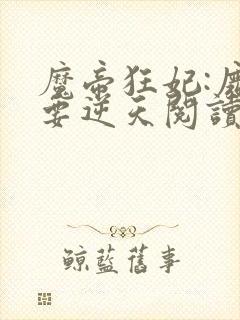 魔帝狂妃:魔
要逆天閱讀
鯨藍舊事